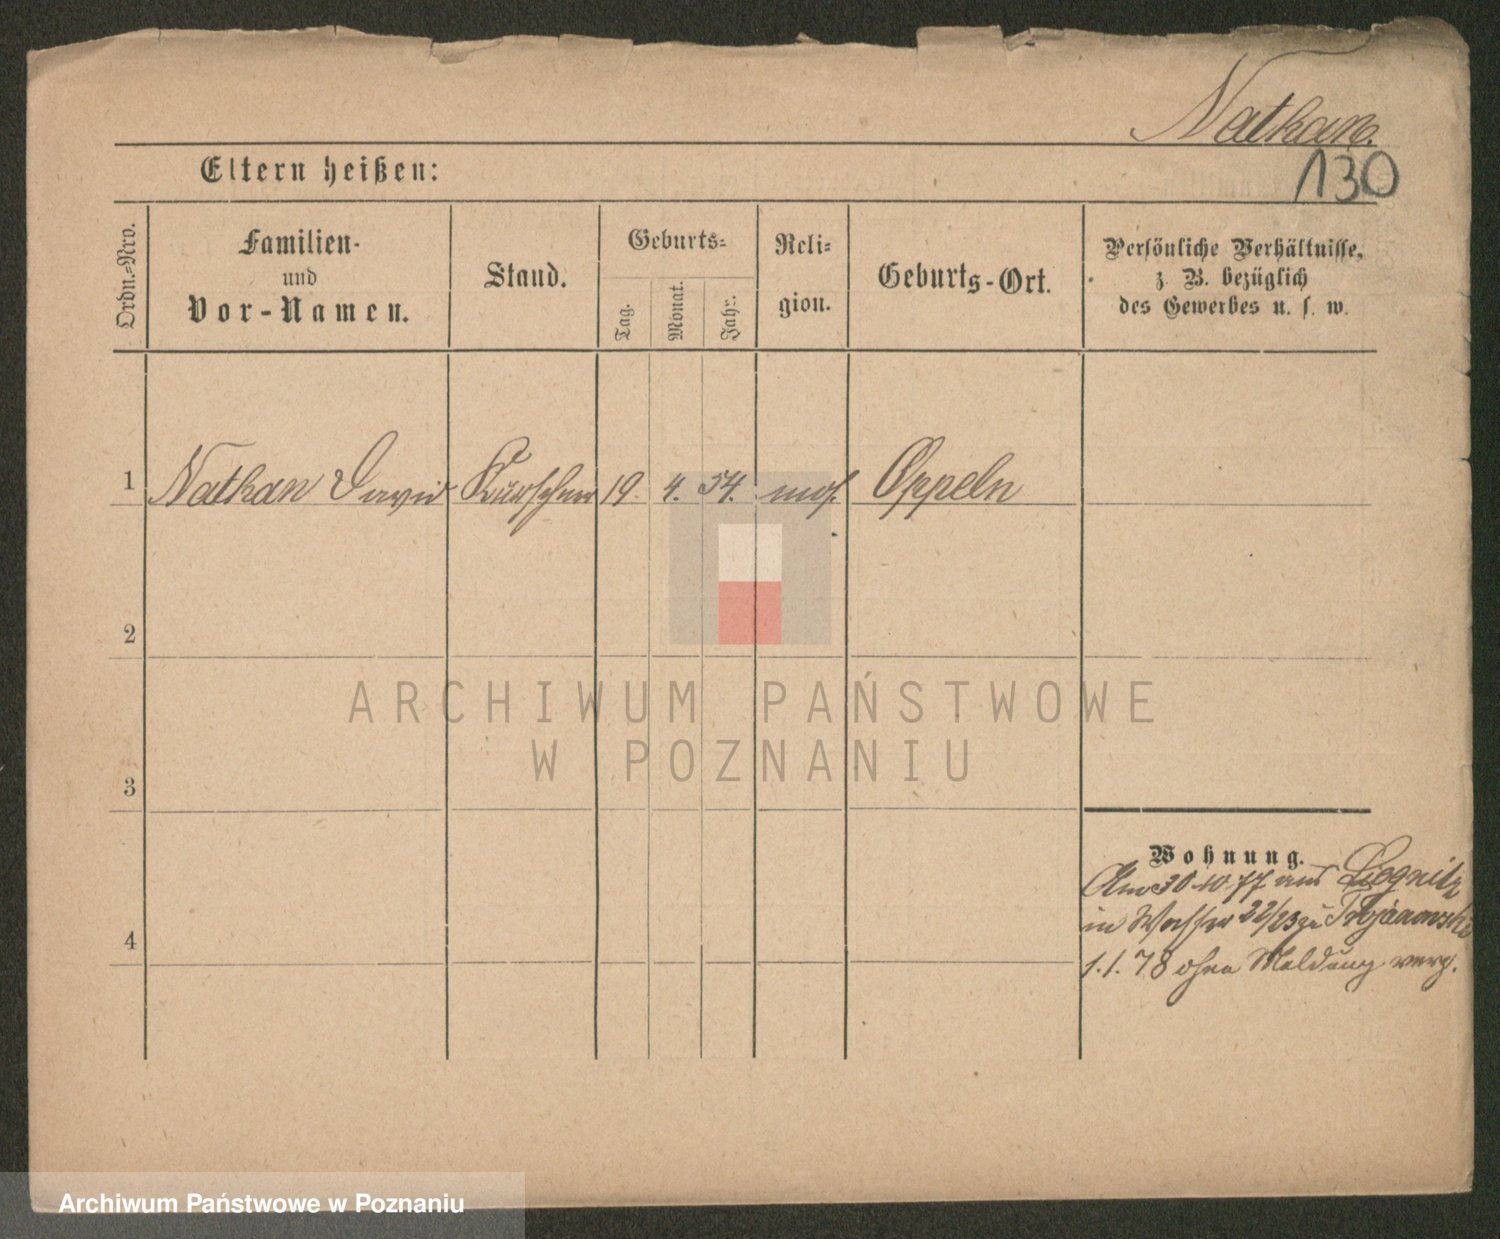 Nathan.
Eltern heißen:
130
Ordn.=Nro.
Familien-
und
Vor-Namen.
Stand.
Geburts=
Tag.
Monat.
Jahr.
Reli=
gion.
Geburts-Ort.
Persönliche Verhältnisse,
z. B. bezüglich
des Gewerbes u. s. w.
1 Nathan David Kürschner 19. 4. 54. mos. Oppeln
2
ARCHIWUM PAŃSTWOWE
W POZNANIU
3
Wohnung.
Am 30.10.77 aus Liegnitz
in Wasser 22/23 zu Trojanowski
4
1.1.78 ohne Meldung verz.
Archiwum Państwowe w Poznaniu